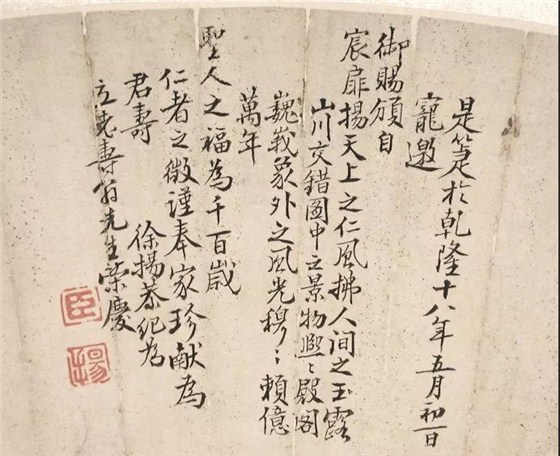 是箑於乾隆十八年五月初一日
寵邀
御賜頒自
宸扉揚天上之仁風拂人间之玉露
山川交錯圖中之景物熙々殿阁
巍峩象外之風光穆々賴億
萬年
聖人之福為千百歲
仁者之徵謹奉家珍献為
君壽 徐揚恭紀為
立老壽翁先生榮慶
臣
揚